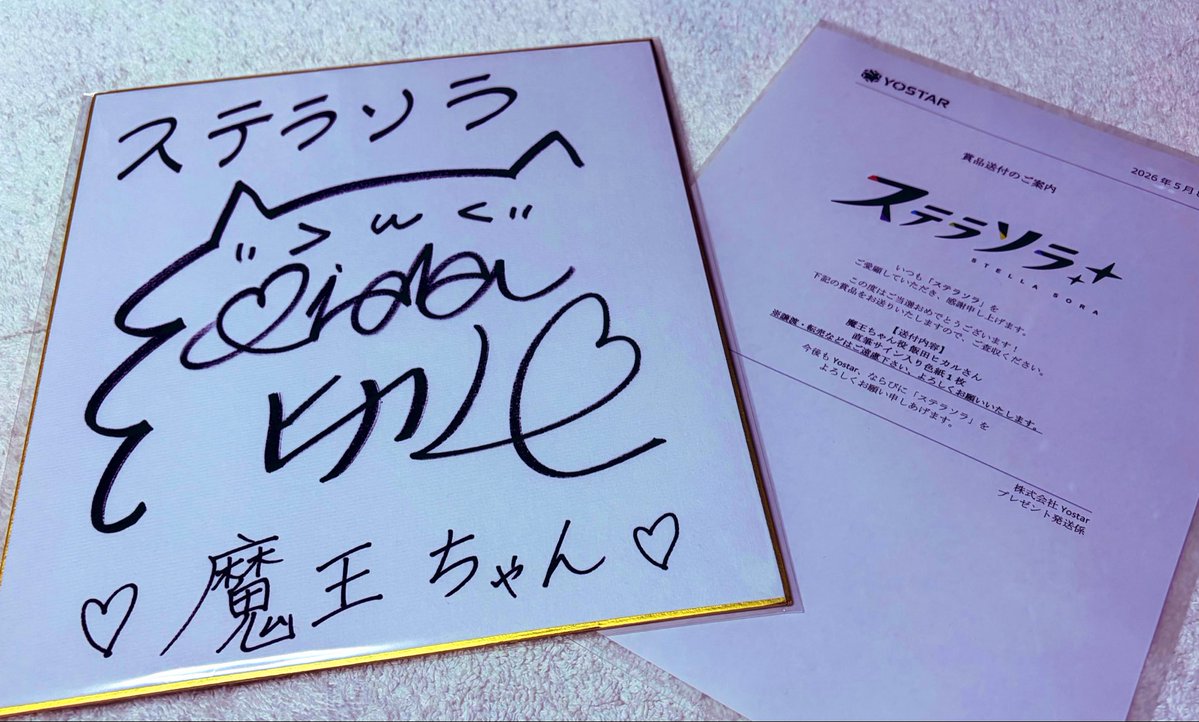 ステラソラ
〃 > w < 〃
ヒカル
♡ 魔王ちゃん ♡
YOSTAR
賞品送付のご案内
2026年5月
ステラソラ
STELLA SORA
いつも「ステラソラ」を
ご愛顧していただき、感謝申し上げます。
この度はご当選おめでとうございます！
下記の賞品をお送りいたしますので、ご査収ください。
【送付内容】
魔王ちゃん役 飯田ヒカルさん
直筆サイン入り色紙1枚
※譲渡・転売などはご遠慮下さい、よろしくお願いいたします。
今後もYostar、ならびに「ステラソラ」を
よろしくお願い申しあげます。
株式会社Yostar
プレゼント発送係